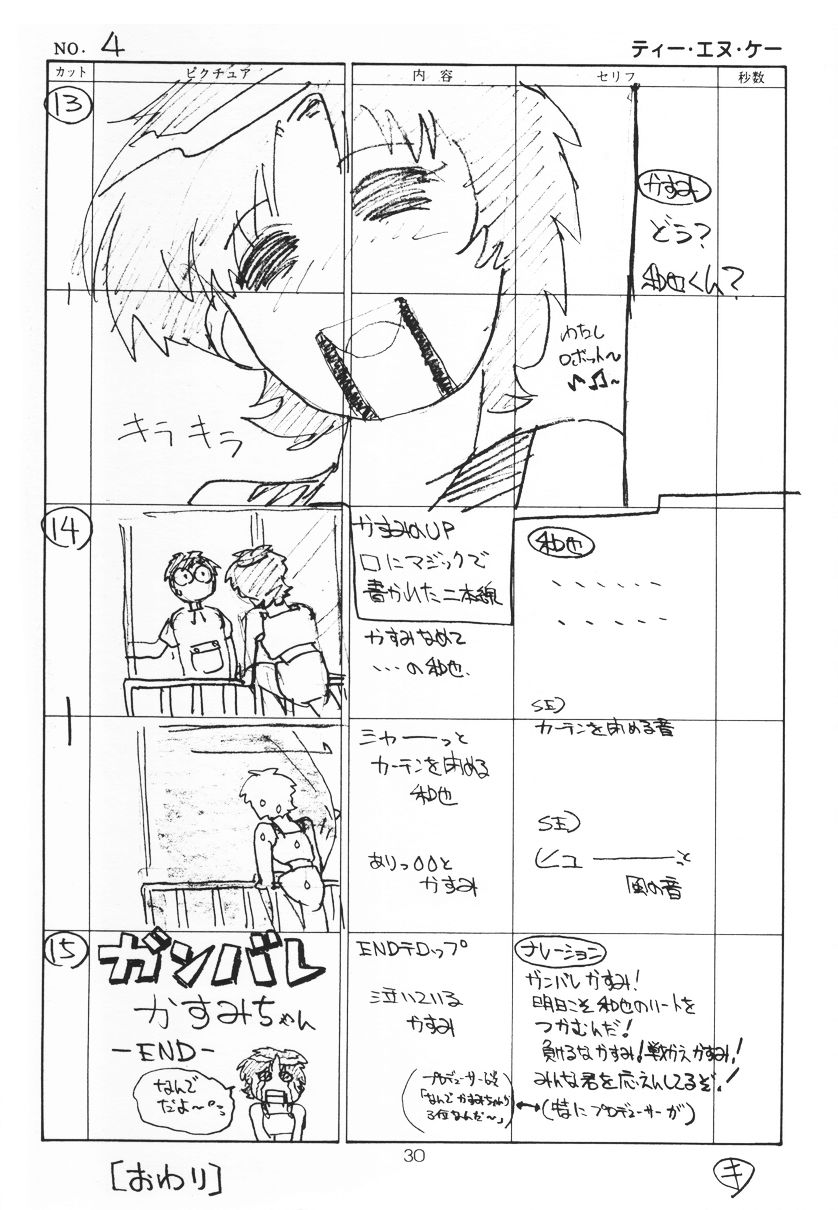 NO. 4
ティー・エヌ・ケー
カット ピクチュア 内容 セリフ 秒数
13
かすみ
どう?
和也くん?
わたし
ロボット〜
♪♫〜
キラキラ
かすみのUP
口にマジックで
書かれた二本線
14
かすみなめて
・・・の和也、
和也
、、、、、、
、、、、、
SE)
カーテンを閉める音
シャーーっと
カーテンを閉める
和也
ありっ00と
かすみ
SE)
ヒューーーと
風の音
15
ガンバレ
かすみちゃん
-END-
なんで
だよ〜
ENDテロップ
泣いている
かすみ
(プロデューサー
「なんでかすみちゃんが
3位なんだ〜」)
ナレーション
ガンバレかすみ!
明日こそ和也のハートを
つかむんだ!
負けるなかすみ!戦かえかすみ!
みんな君を応えんしてるぞ!
(特にプロデューサーが)
30
[おわり]
キ